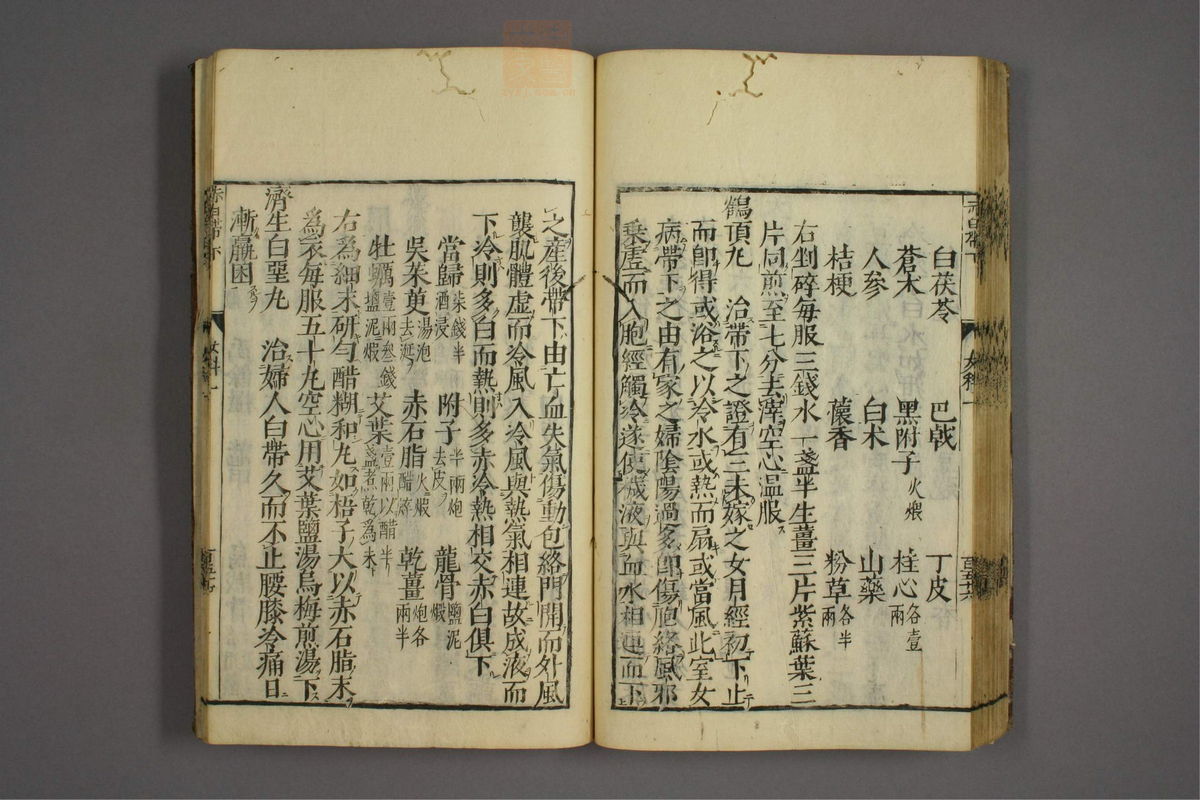 白茯苓 巴戟 丁皮
蒼木 黑附子火煨 桂心各壹兩
人參 白木 山藥
桔梗 藿香 粉草各半兩
右剉碎每服三錢水一盞半生薑三片紫蘇葉三
片同煎至七分去滓空心温服
鶴頂丸 治帶下之證有三未嫁之女月經初下止
而卽得或浴之以冷水或熱而扇或當風此室女
病帶下之由有家之婦陰陽過多卽傷胞絡風邪
乗虛而入胞經觸冷遂使穢液與血水相連而下
之産後帶下由亡血失氣傷動包絡門開而外風
襲肌體虛而冷風入冷風與熱氣相連故成液而
下冷則多白而熱則多赤冷熱相交赤白俱下
當歸柒錢半酒浸 附子半兩炮去皮 龍骨鹽泥煅
吳茱萸湯泡去涎 赤石脂火煅醋淬 乾薑炮各兩半
牡蠣壹兩叁錢塩泥煅 艾葉壹兩以醋半盞煮乾為末
右為細末研勻醋糊和丸如梧子大以赤石脂末
為衣每服五十丸空心用艾葉鹽湯烏梅煎湯下
濟生白堊丸 治婦人白帶久而不止腰膝冷痛日
漸羸困
赤白帶下
女科一